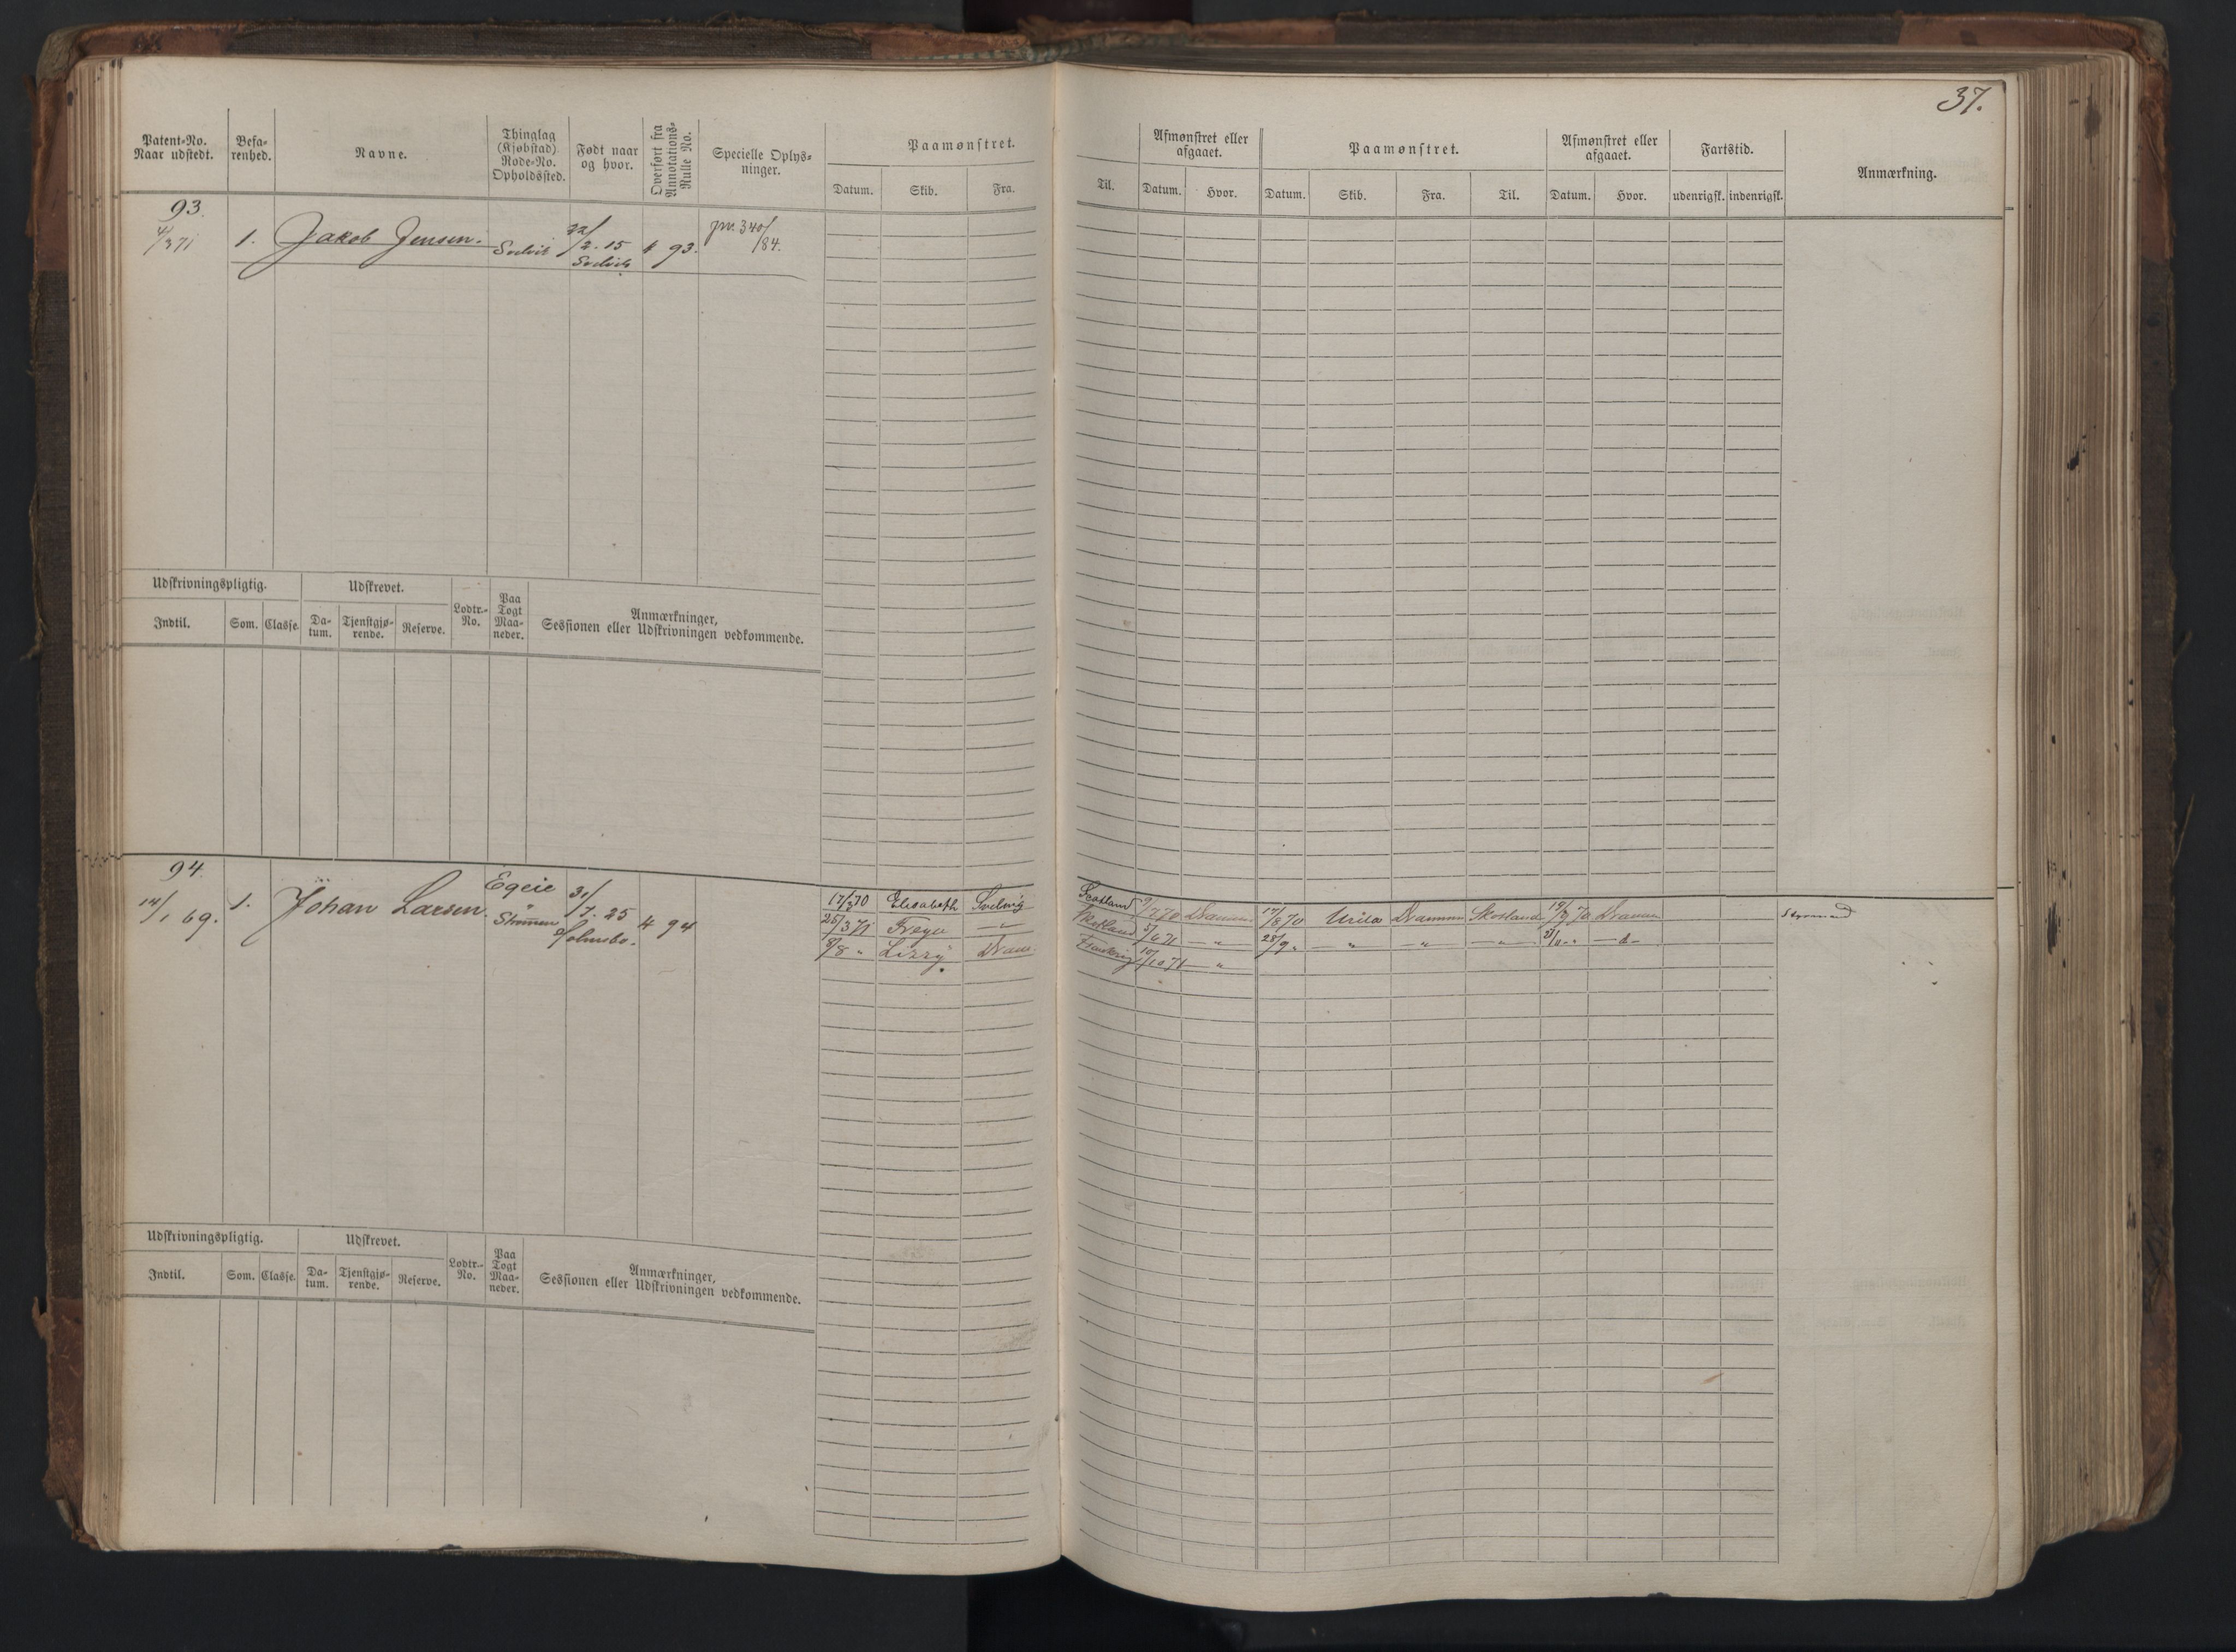 37.
Patent-No. Naar udstedt.
Befarenhed.
Navne.
Thinglag (Kjøbstad) Rode-No. Opholdssted.
Født naar og hvor.
Overført fra Annotations-Rulle No.
Specielle Oplysninger.
Paamønstret.
Datum. Skib. Fra.
Til.
Afmønstret eller afgaaet.
Datum. Hvor.
Paamønstret.
Datum. Skib. Fra. Til.
Afmønstret eller afgaaet.
Datum. Hvor.
Fartstid.
udenrigsk. indenrigsk.
Anmærkning.
93.
4/3 71 1. Jakob Jensen. Svelvik 22/2. 15 Svelvik 4 93. pr. 340/84.
Udskrivningspligtig. Udskrevet. Lodtr.-No. Paa Togt Maaneder. Anmærkninger, Sessionen eller Udskrivningen vedkommende.
Indtil. Som. Classe. Datum. Tjenstgjørende. Reserve.
94.
14/1 69. 1. Johan Larsen. Egeie Strømmen 31/7. 25 Holmsbo. 4 94
17/2 70 Elisabeth Svelvig Scotland 9/7 70 Drammen 17/8 70 Urila Drammen Skotland 19/9 70 Drammen Styrmand
25/3 71 Freya — " — 5/6 71 — " 28/9 " — " — " — " — 31/ " " — d —
8/8 " Lizzy Dram. 10/10 71 — "
Udskrivningspligtig. Udskrevet. Lodtr.-No. Paa Togt Maaneder. Anmærkninger, Sessionen eller Udskrivningen vedkommende.
Indtil. Som. Classe. Datum. Tjenstgjørende. Reserve.